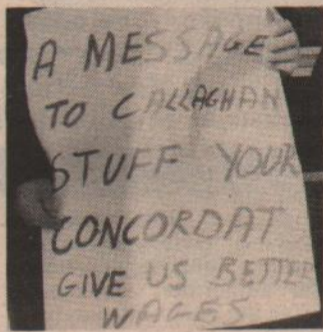 A MESSAGE
TO CALLAGHAN
STUFF YOUR
CONCORDAT
GIVE US BETTER
WAGES